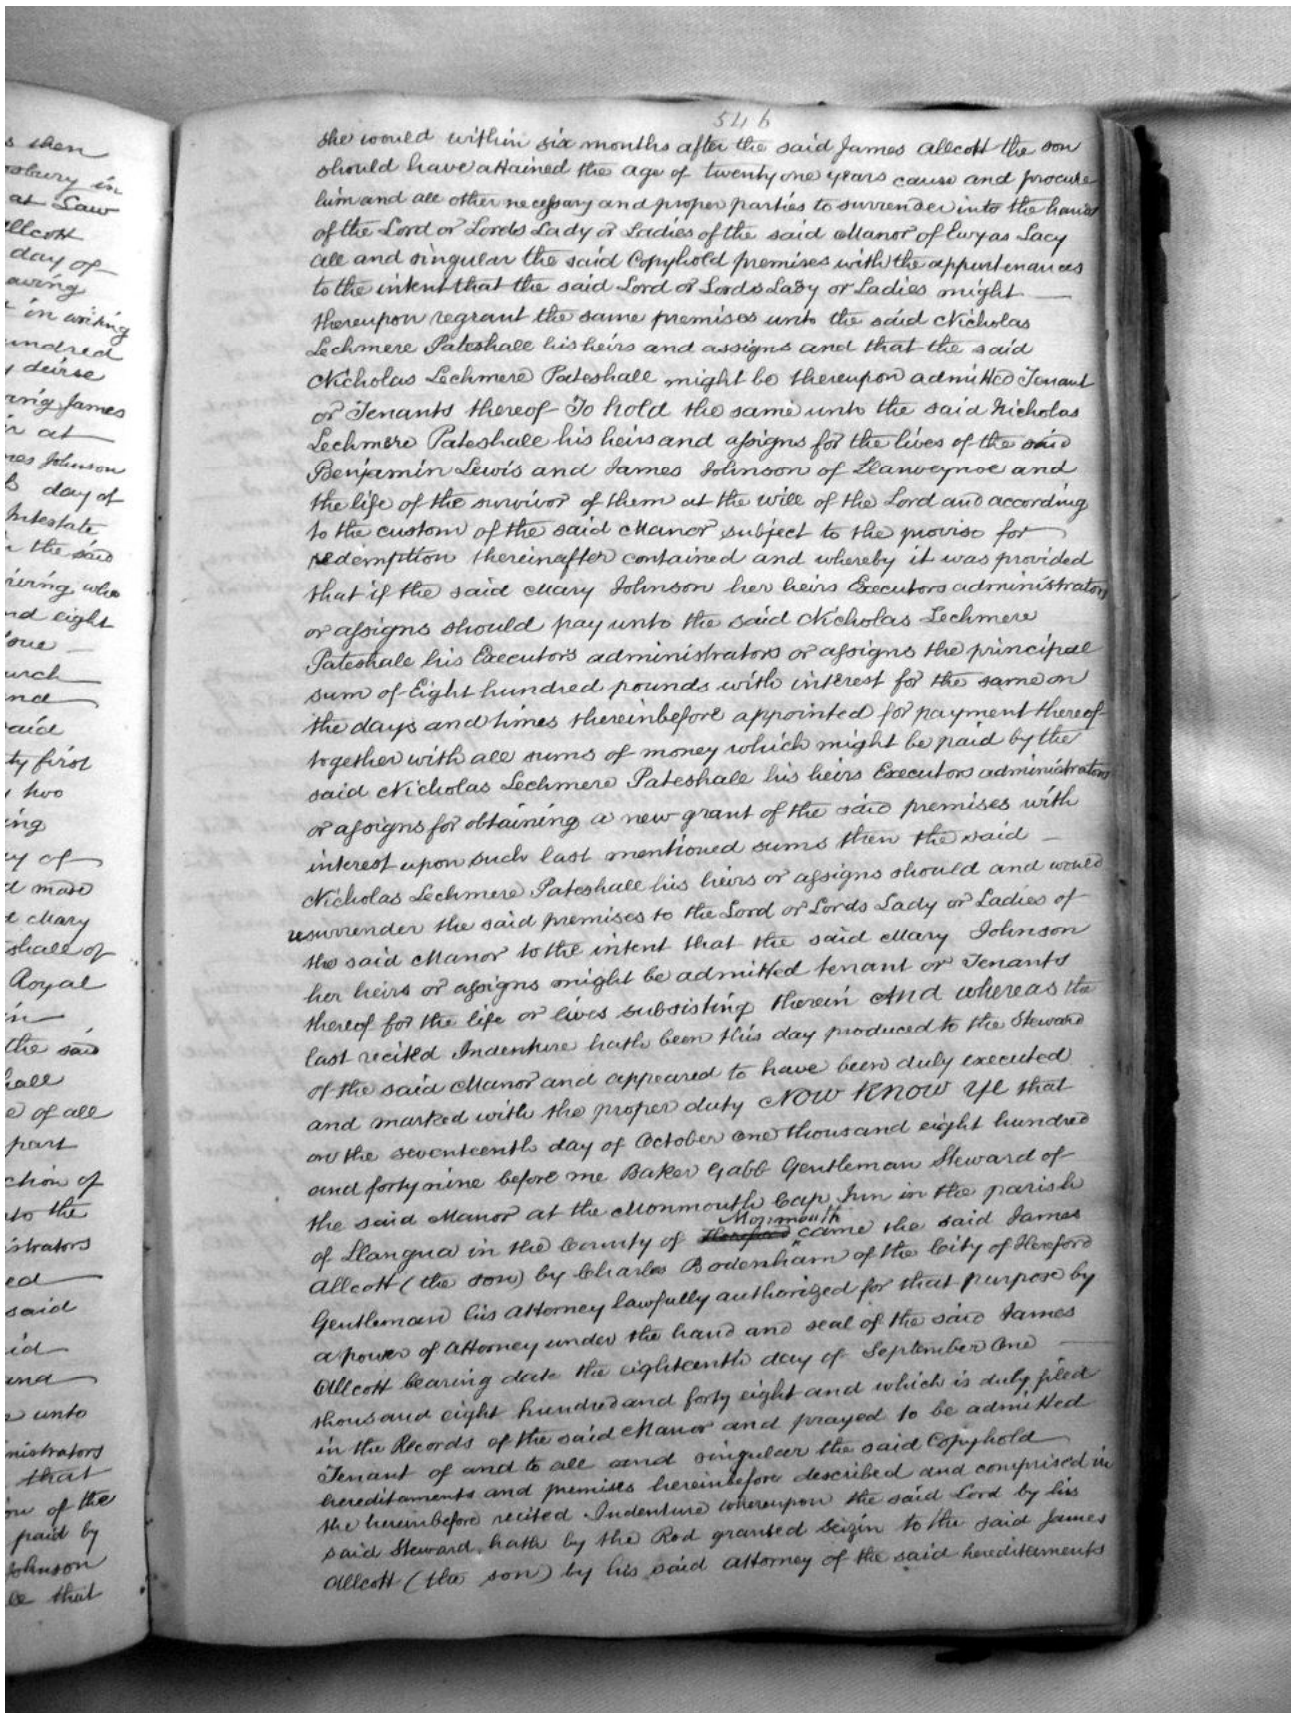 s then
at Law
Allcott
day of
in writing
hundred
deise
James
at
Johnson
day of
Intestate
the said
who
and eight
said
ty first
two
ing
y of
made
Mary
shall of
Royal
in
the said
hall
e of all
part
ction of
to the
istrators
ed
said
id
and
unto
ministrators
that
of the
paid by
Johnson
that
546
she would within six months after the said James Allcott the son
should have attained the age of twenty one years cause and procure
him and all other necessary and proper parties to surrender into the hands
of the Lord or Lords Lady or Ladies of the said Manor of Ewyas Lacy
all and singular the said Copyhold premises with the appurtenances
to the intent that the said Lord or Lords Lady or Ladies might
thereupon regrant the same premises unto the said Nicholas
Lechmere Pateshall his heirs and assigns and that the said
Nicholas Lechmere Pateshall might be thereupon admitted Tenant
or Tenants thereof To hold the same unto the said Nicholas
Lechmere Pateshall his heirs and assigns for the lives of the said
Benjamin Lewis and James Johnson of Llanveynoe and
the life of the survivor of them at the will of the Lord and according
to the custom of the said Manor subject to the proviso for
redemption thereinafter contained and whereby it was provided
that if the said Mary Johnson her heirs Executors administrators
or assigns should pay unto the said Nicholas Lechmere
Pateshall his Executors administrators or assigns the principal
sum of Eight hundred pounds with interest for the same on
the days and times thereinbefore appointed for payment thereof
together with all sums of money which might be paid by the
said Nicholas Lechmere Pateshall his heirs Executors administrators
or assigns for obtaining a new grant of the said premises with
interest upon such last mentioned sums then the said
Nicholas Lechmere Pateshall his heirs or assigns should and would
resurrender the said premises to the Lord or Lords Lady or Ladies of
the said Manor to the intent that the said Mary Johnson
her heirs or assigns might be admitted tenant or Tenants
thereof for the life or lives subsisting therein And whereas the
last recited Indenture hath been this day produced to the Steward
of the said Manor and appeared to have been duly executed
and marked with the proper duty Now Know Ye that
on the seventeenth day of October One thousand eight hundred
and forty nine before me Baker Gabb Gentleman Steward of
the said Manor at the Monmouth Cap Inn in the parish
of Llangua in the County of Hereford Monmouth came the said James
Allcott (the son) by Charles Bodenham of the City of Hereford
Gentleman his Attorney lawfully authorized for that purpose by
a power of Attorney under the hand and seal of the said James
Allcott bearing date the eighteenth day of September One
thousand eight hundred and forty eight and which is duly filed
in the Records of the said Manor and prayed to be admitted
Tenant of and to all and singular the said Copyhold
hereditaments and premises hereinbefore described and comprised in
the hereinbefore recited Indenture whereupon the said Lord by his
said Steward hath by the Rod granted Seizin to the said James
Allcott (the son) by his said Attorney of the said hereditaments